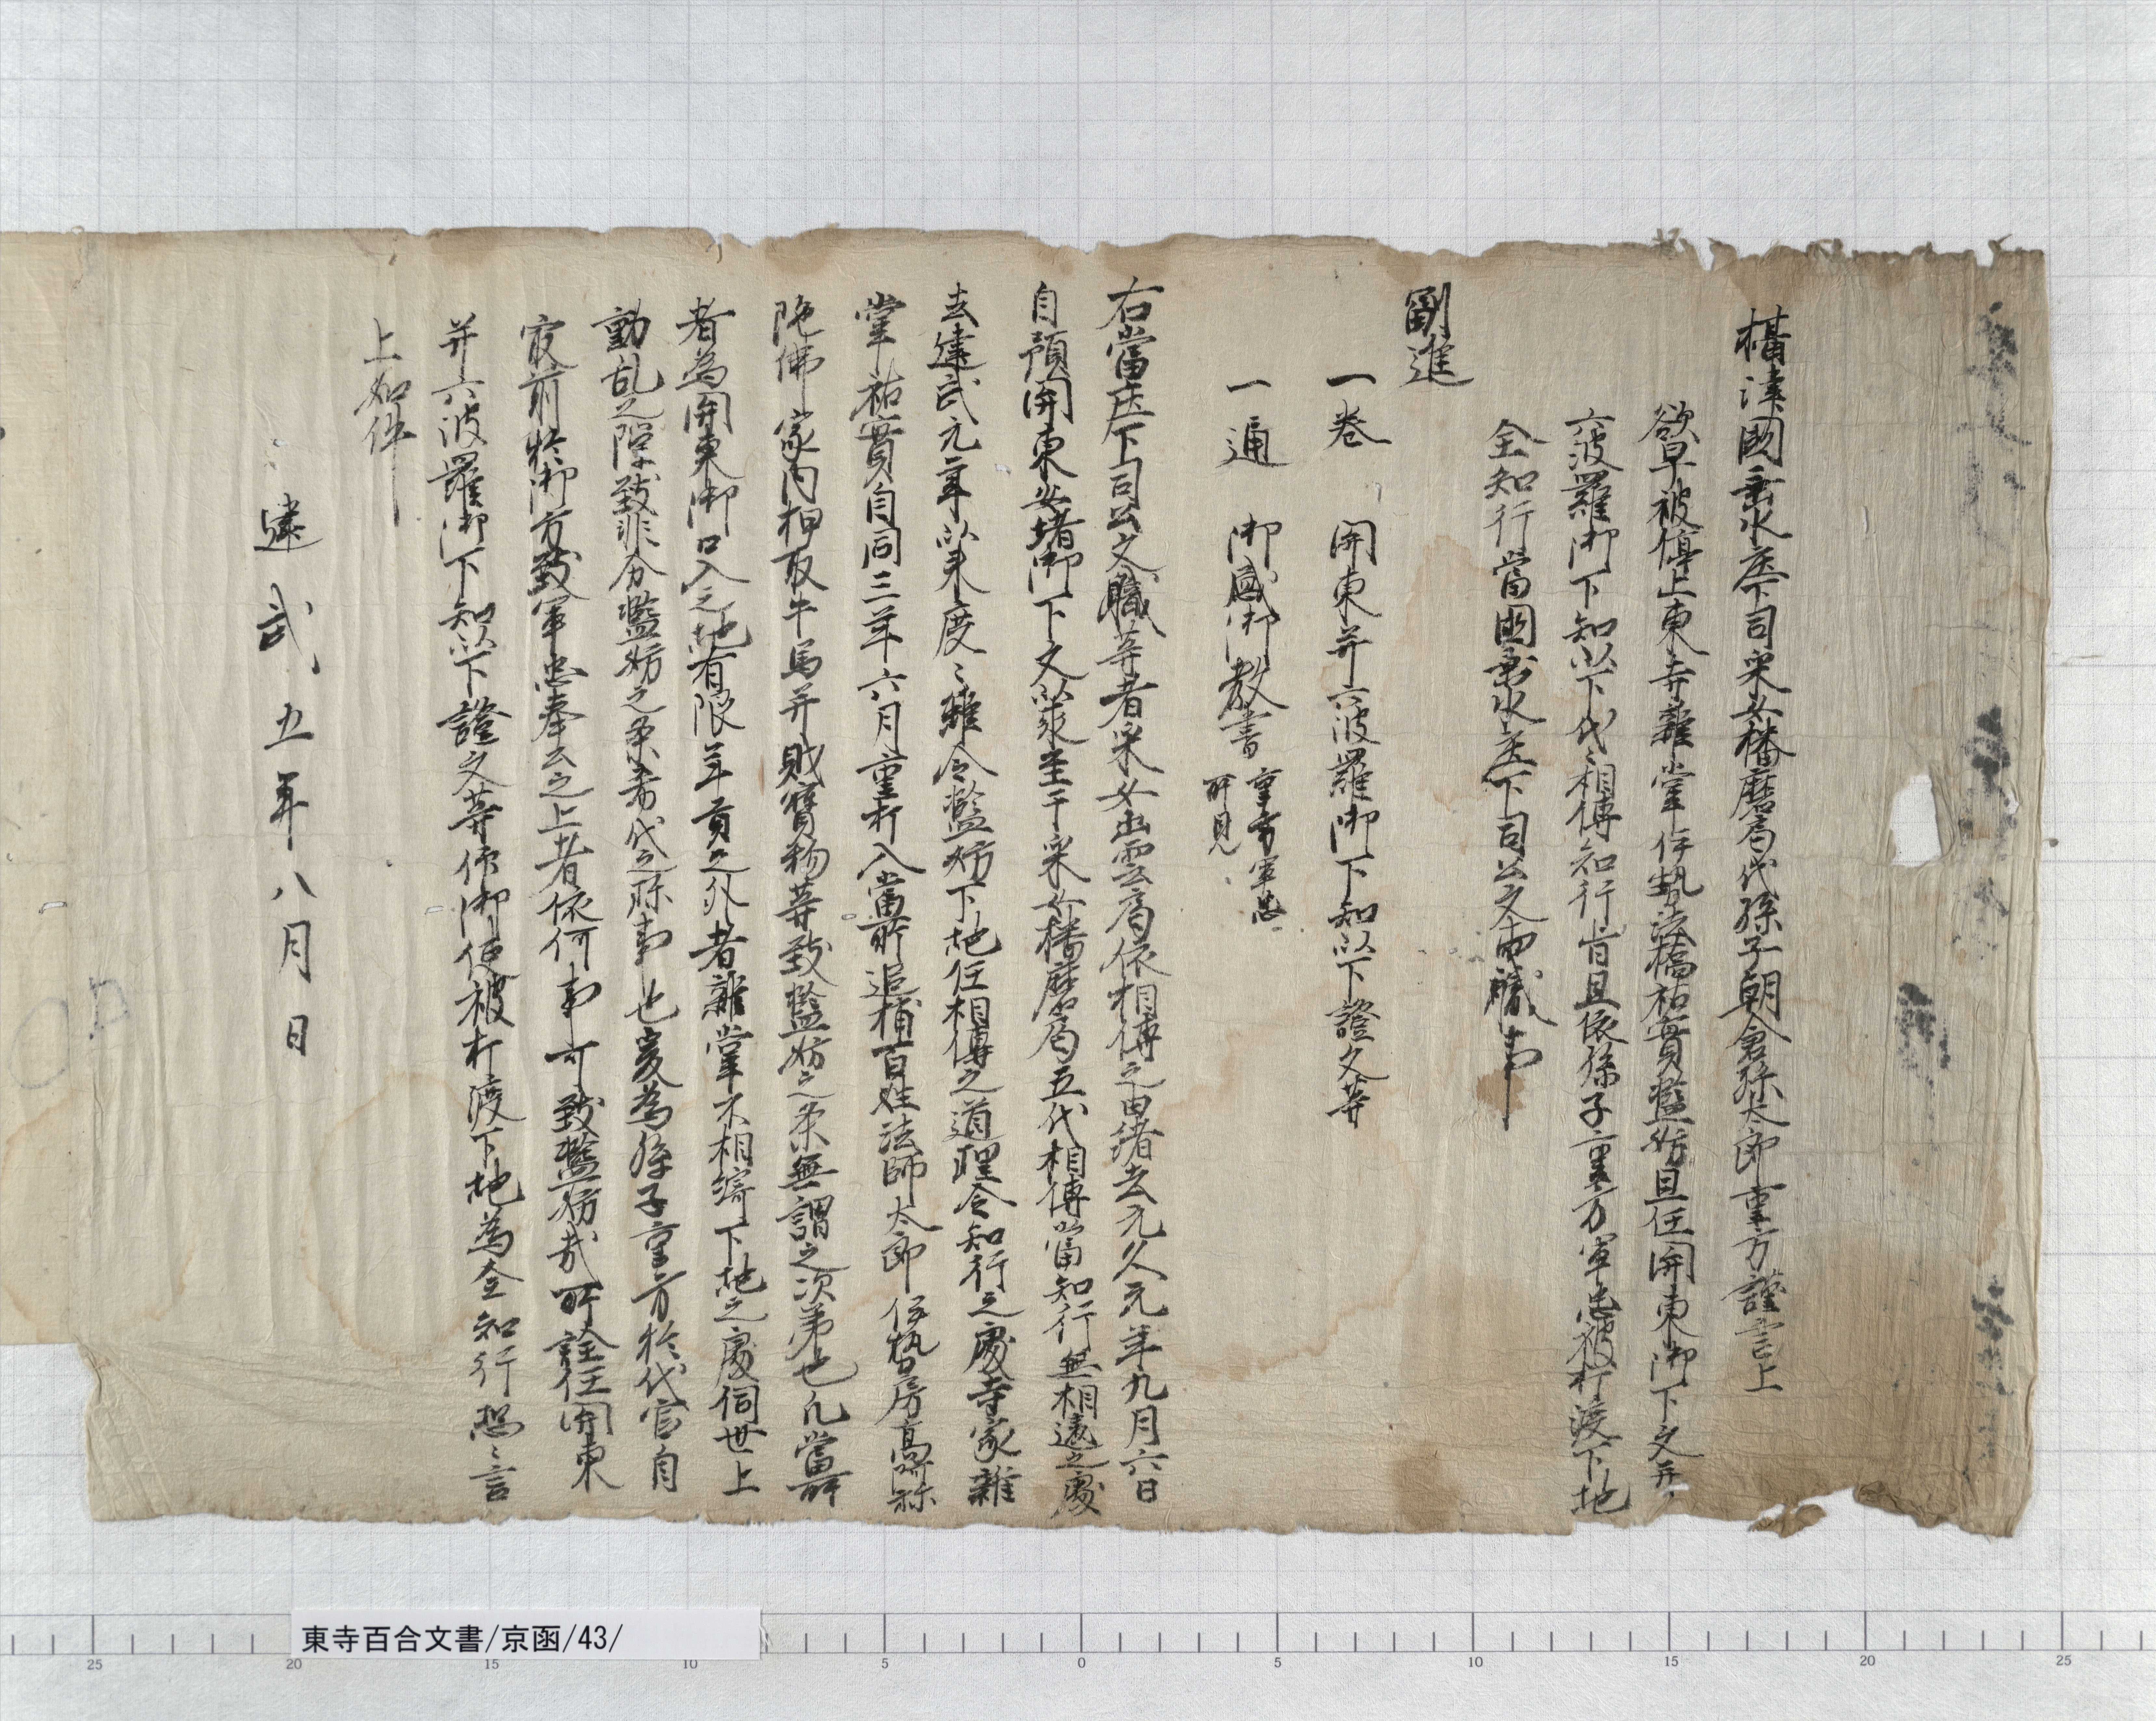 摂津國垂水庄下司采女播磨局代孫子朝倉孫太郎重方謹言上
欲早被停止東寺雑掌伊勢法橋祐實濫妨且任関東御下文并
六波羅御下知以下代々相傳知行旨且依孫子重方軍忠被打渡下地
全知行當國垂水庄下司公文両職事
副進
一巻 関東并六波羅御下知以下證文等
一通 御感御教書 重方軍忠
所見
右當庄下司公文職等者采女出雲局依相傳之由緒去元久元年九月六日
自預関東安堵御下文以来至于采女播磨局五代相傳當知行無相違之處
去建武元年以来度々雖令濫妨下地任相傳之道理令知行之處寺家雑
掌祐實自同三年六月重打入當所追捕百姓法師太郎伊勢房高阿弥
陀佛家内押取牛馬并財寳物等致濫妨之条無謂之次第也凡當所
者為関東御口入之地有限年貢之外者雑掌不相綺下地之處伺世上
動乱之隙致非分濫妨之条希代之珎事也爰為孫子重方於代官自
最前於御方致軍忠奉公之上者依何事可致濫妨哉所詮任関東
并六波羅御下知以下證文等仰御使被打渡下地為全知行恐々言
上如件
建武五年八月 日
東寺百合文書/京函/43/
25 20 15 10 5 0 5 10 15 20 25